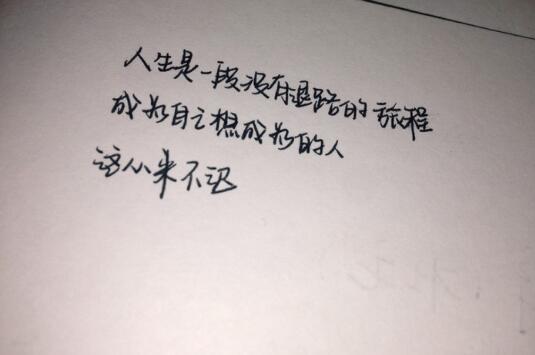 人生是一段没有退路的旅程
成为自己想成为的人
这小来不迟